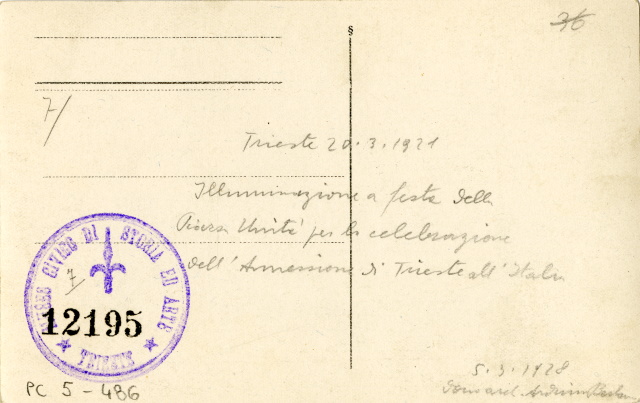 §
36
7/
Trieste 20.3.1921
Illuminazione a festa della
Piazza Unità per la celebrazione
dell'Annessione di Trieste all'Italia
MUSEO CIVICO DI STORIA ED ARTE
7/
12195
★ TRIESTE ★
5.3.1928
PC 5-486